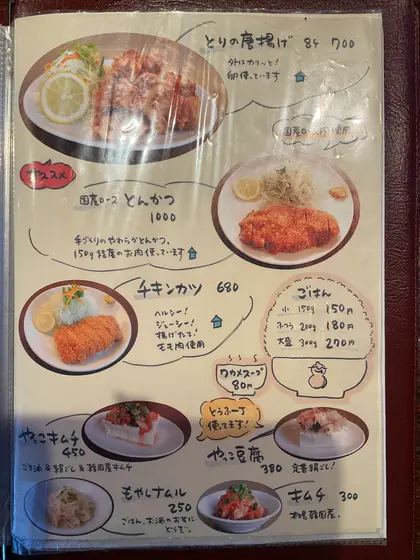 とりの唐揚げ 8ヶ 700
外はカリッと!
卵使っています
国産ロース肉使用
オススメ!
国産ロース とんかつ
1000
手づくりのやわらかとんかつ。
150g程度のお肉使っています
チキンカツ 680
ヘルシー!
ジューシー!
揚げたて!
もも肉使用
ごはん
小 150g 150円
ふつう 200g 180円
大盛 300g 270円
ワカメスープ
80円
やっこキムチ
450
ごま油&絹ごし&韓国産キムチ
とうふ一丁
使ってます!
やっこ豆腐
380 定番絹ごし!
もやしナムル
250
ごはん、お酒のおともに
どうぞ。
キムチ 300
本場韓国産。